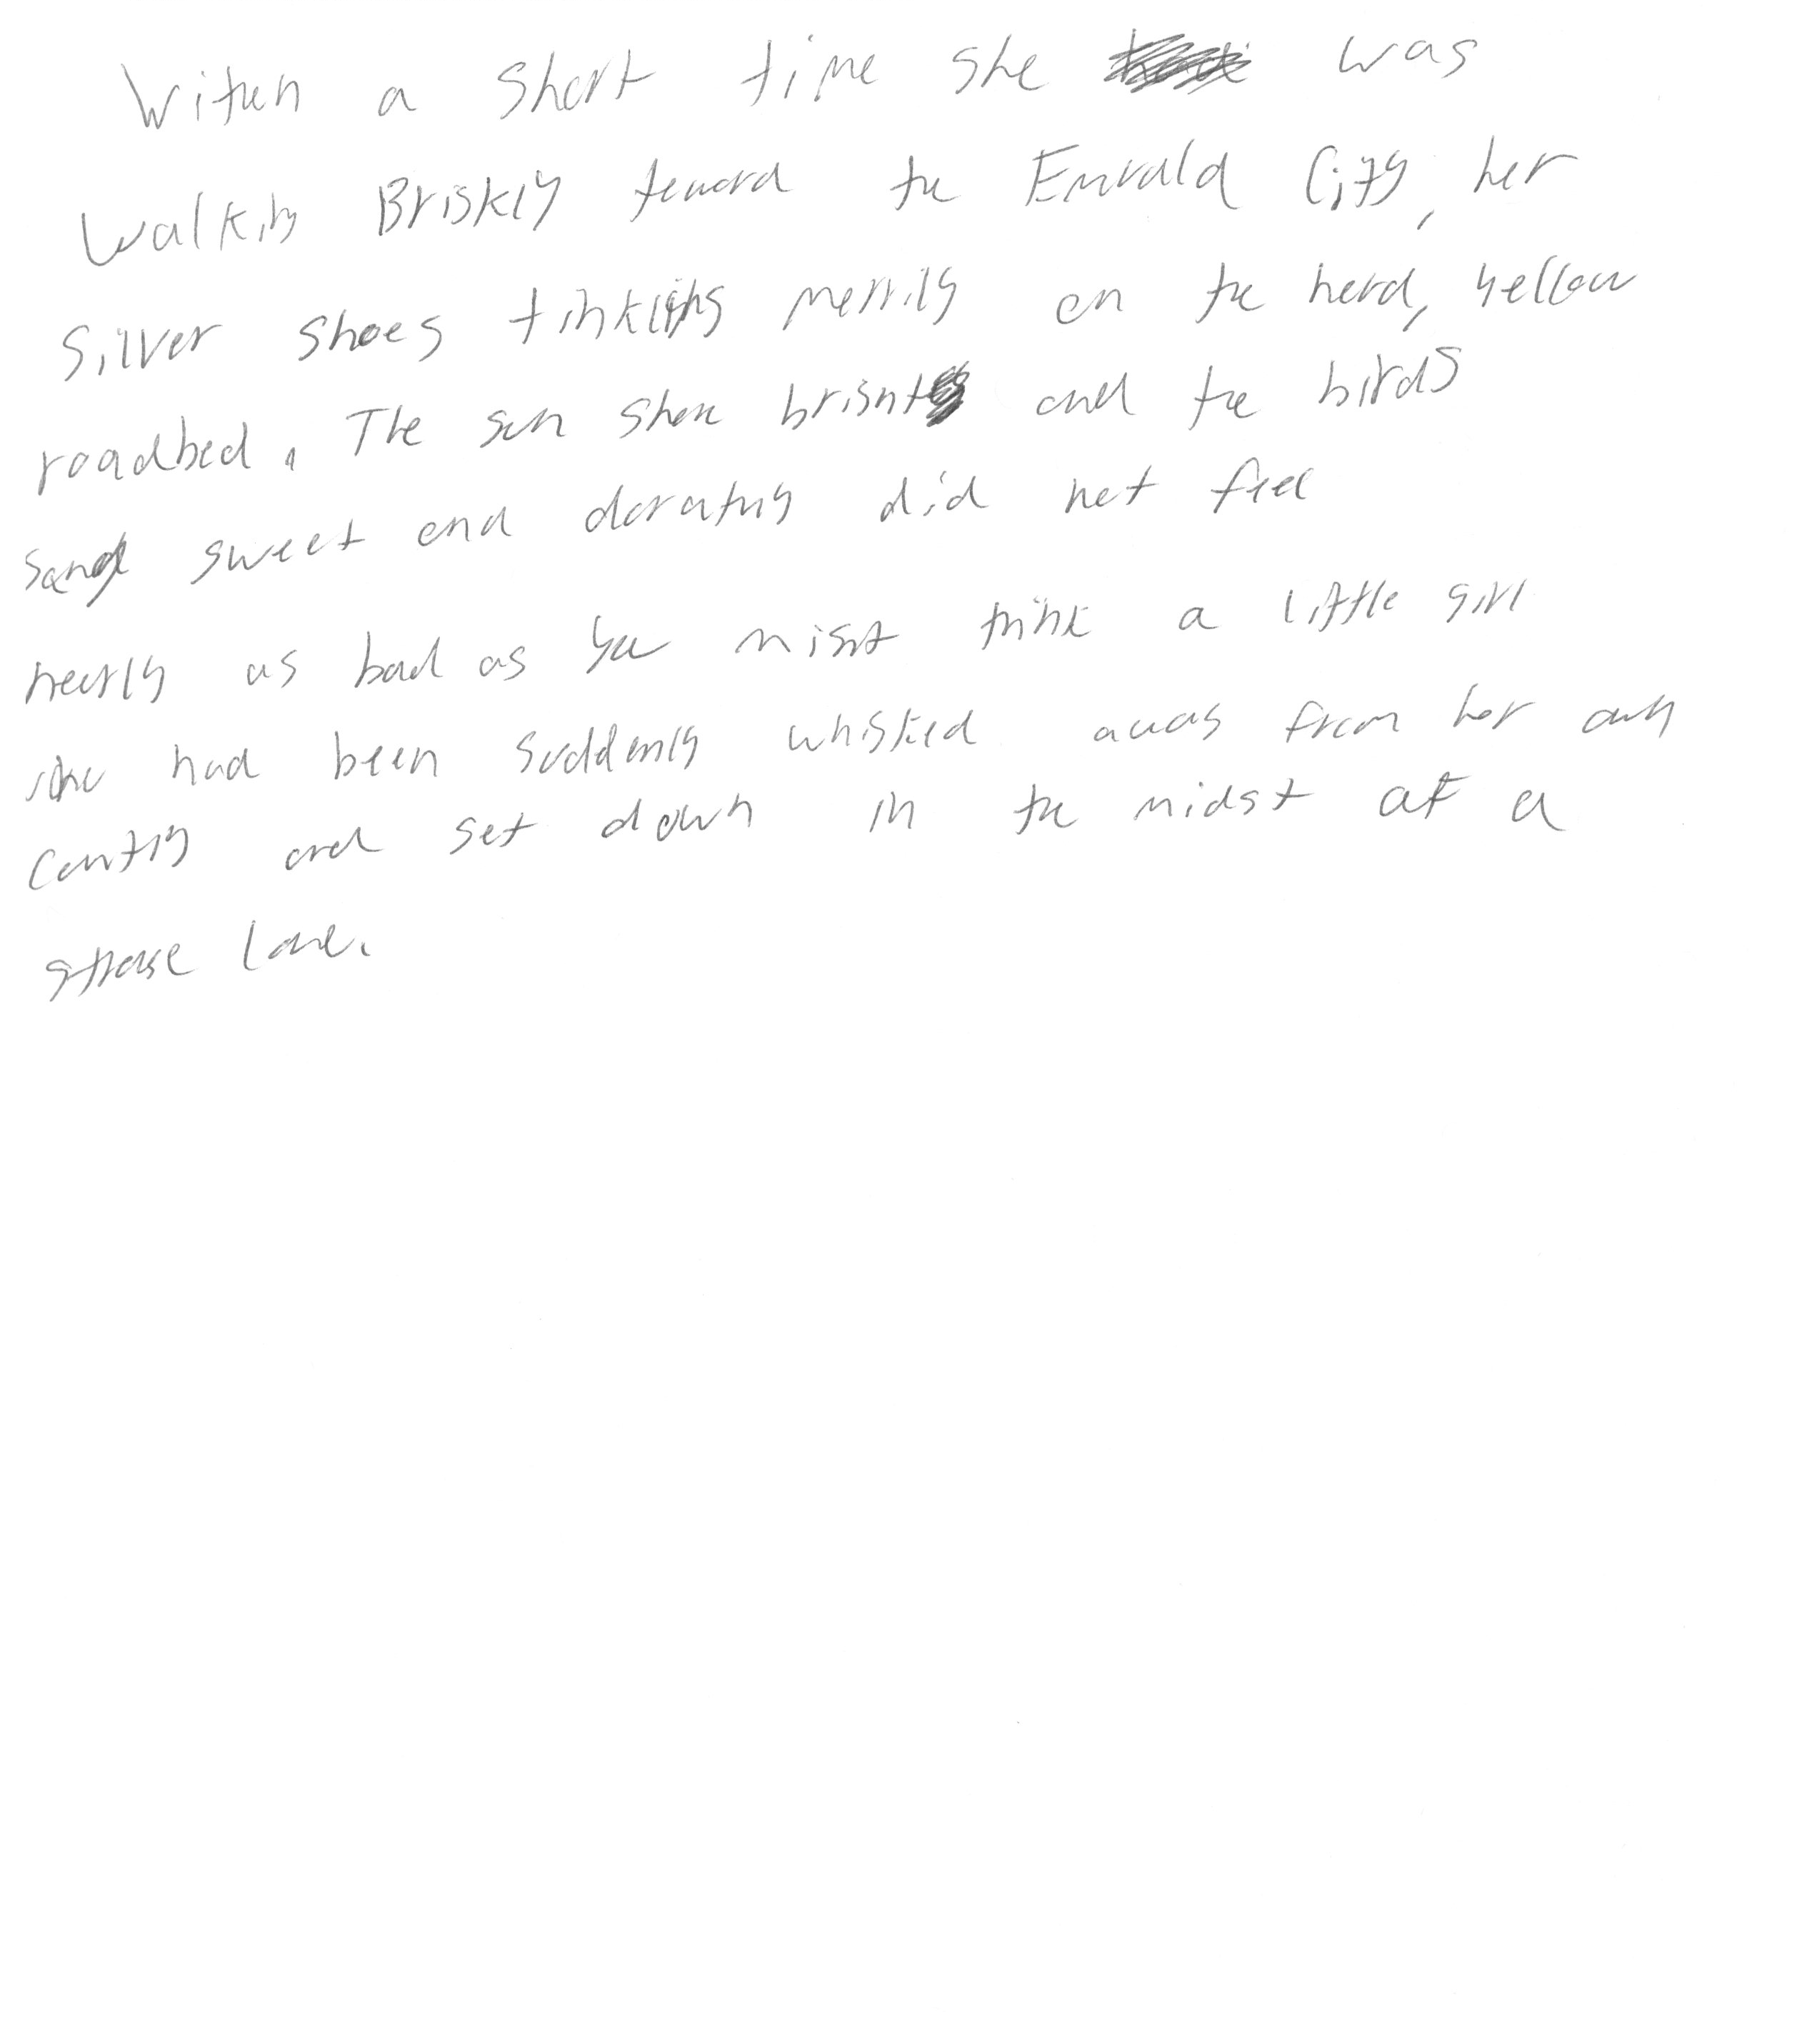 Within a short time she was
walking Briskly toward the Emrald City, her
silver shoes tinkling merrily on the hard, yellow
roadbed. The sun shone bright and the birds
sang sweet and dorathy did not feel
nearly as bad as you might think a little girl
who had been suddenly whisked away from her own
country and set down in the midst of a
strange land.